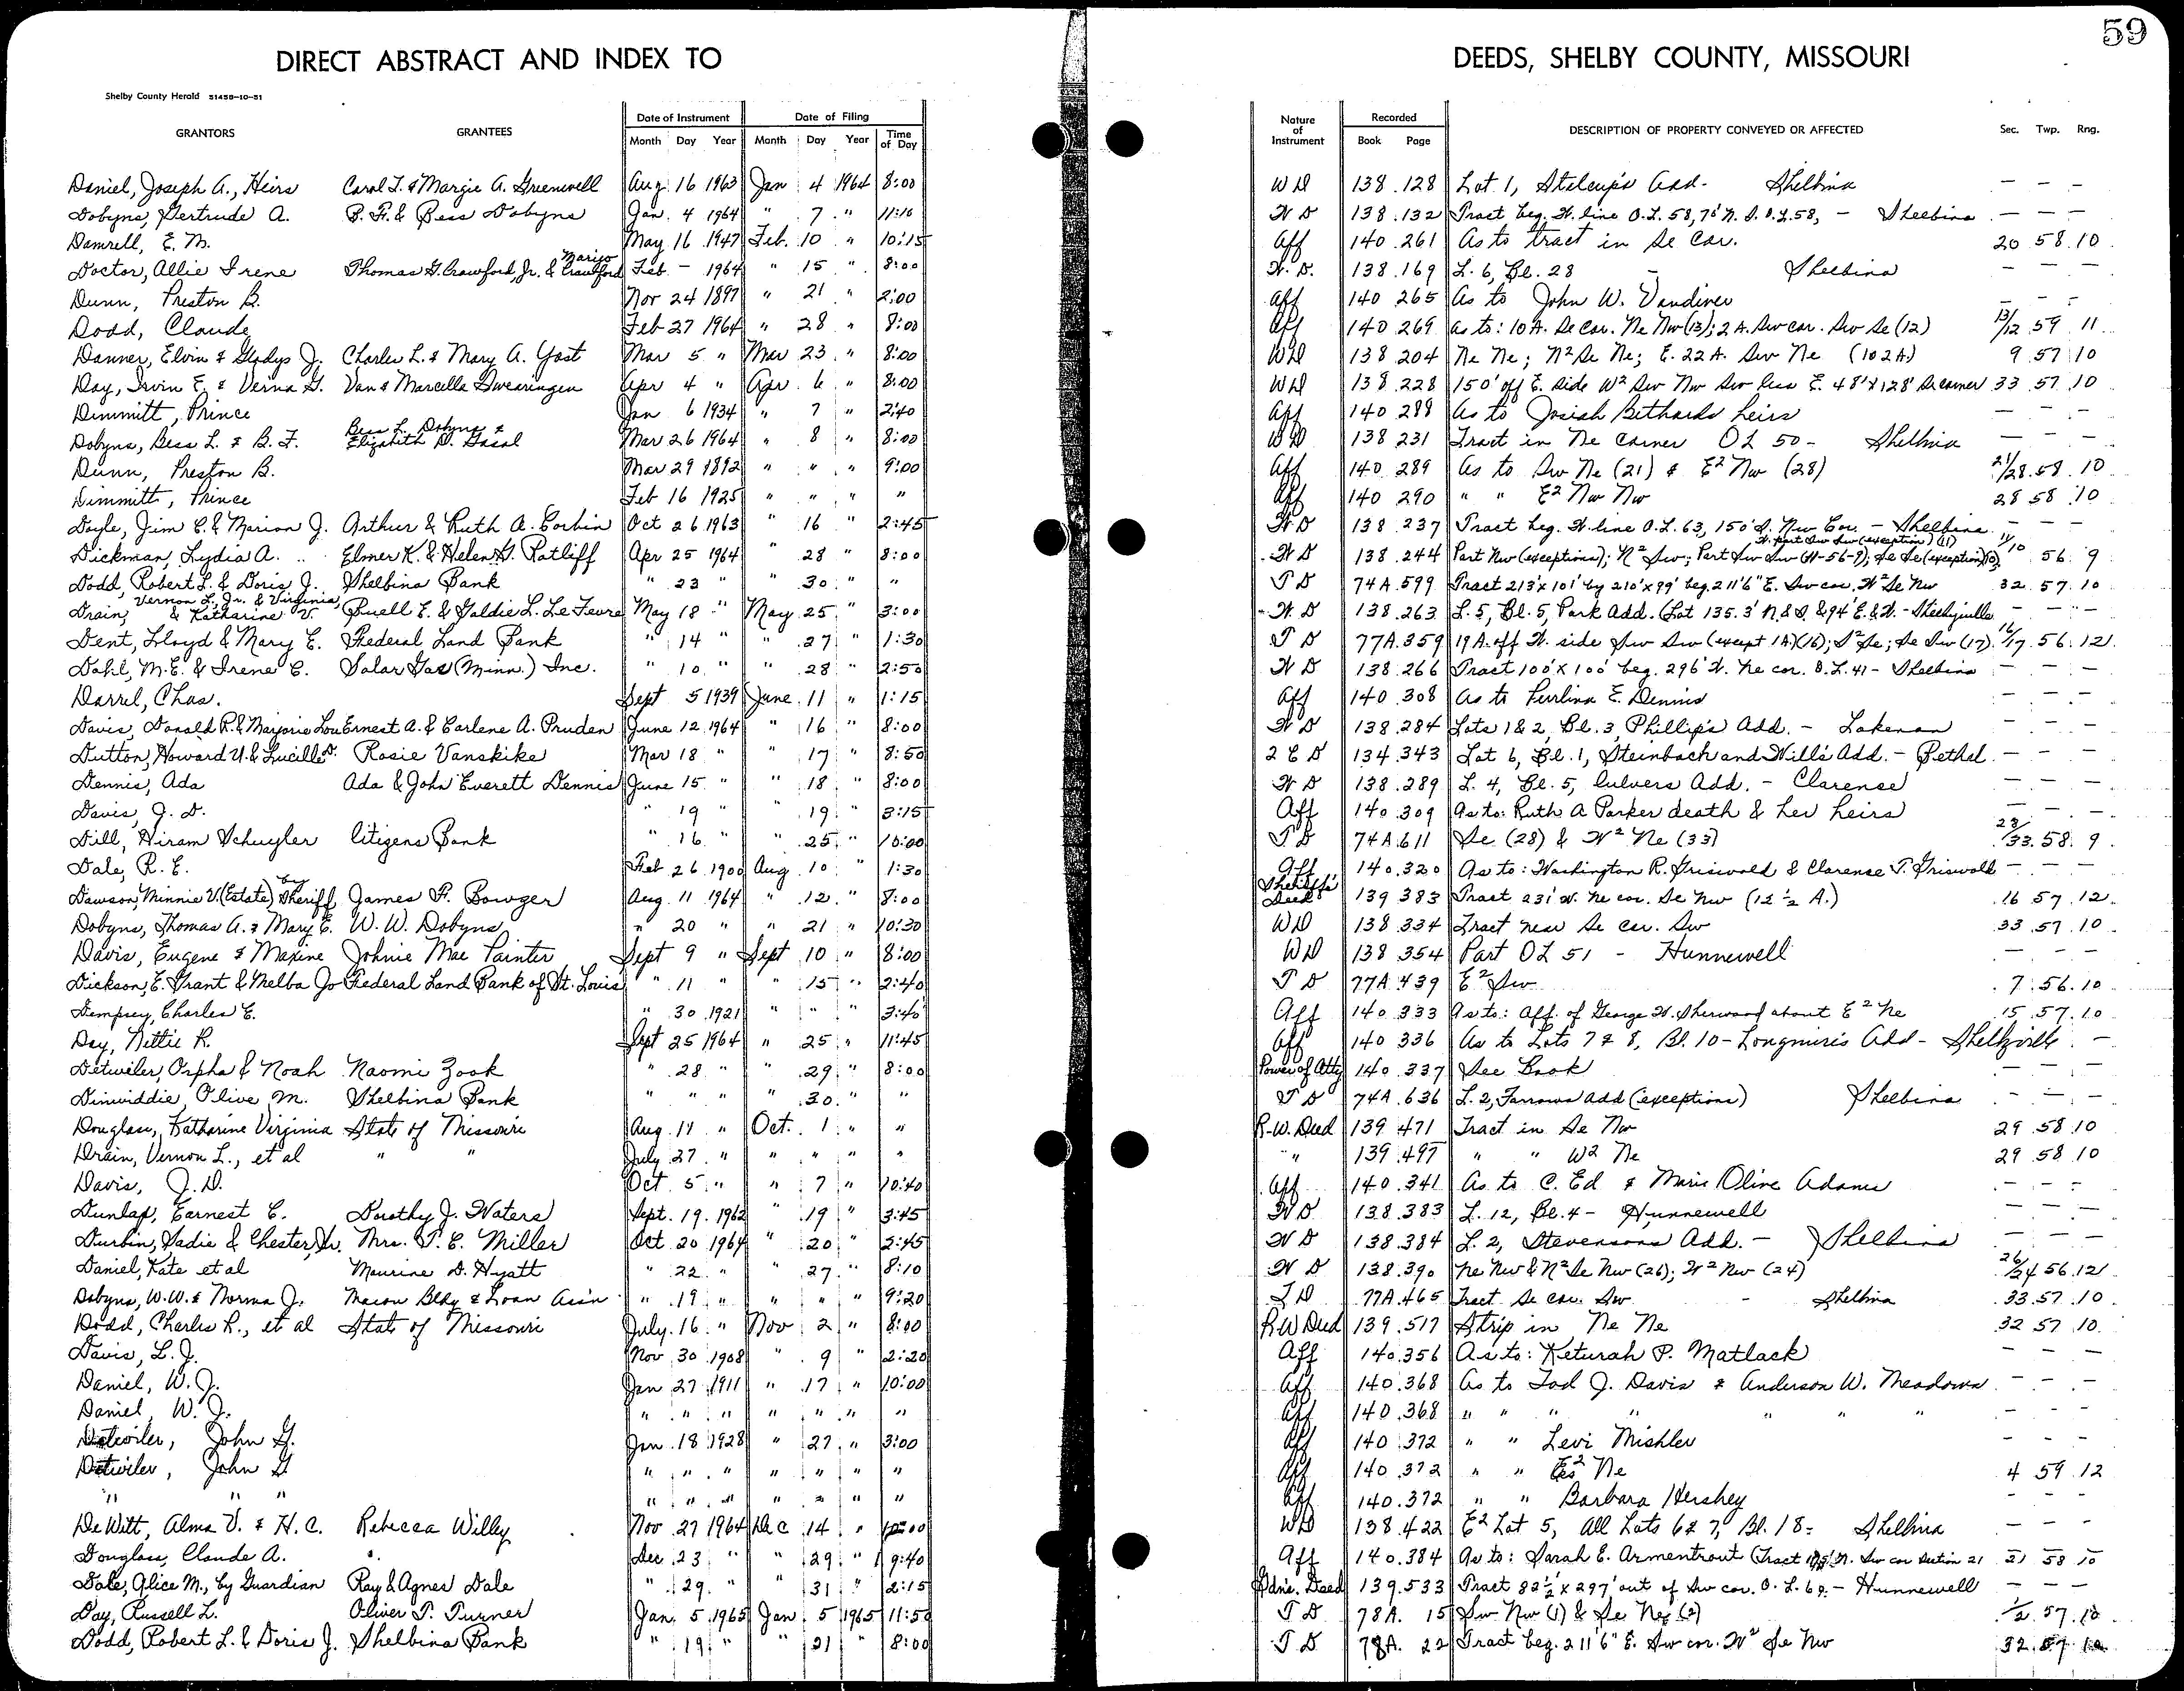 59
DIRECT ABSTRACT AND INDEX TO DEEDS, SHELBY COUNTY, MISSOURI
Shelby County Herald 51458-10-51
GRANTORS GRANTEES Date of Instrument Date of Filing Nature of Instrument Recorded DESCRIPTION OF PROPERTY CONVEYED OR AFFECTED Sec. Twp. Rng.
Month Day Year Month Day Year Time of Day Book Page
Daniel, Joseph A., Heirs Carol T. & Margie A. Greenwell Aug. 16 1963 Jan 4 1964 8:00 WD 138 128 Lot 1, Stalcup's Add- Shelbina — — —
Dobyns, Gertrude A. B. F. & Bess Dobyns Jan. 4 1964 " 7 " 11:10 WD 138 132 Tract beg. W. line O.L. 58, 76' N. O.L. 58, — Shelbina — — —
Damrell, E. M. May 16 1947 Feb. 10 " 10:15 Aff 140 261 As to tract in Se Cor. 20 58 10
Doctor, Allie Irene Thomas G. Crawford, Jr. & Crawford Feb — 1964 " 15 " 8:00 W.D. 138 169 L. 6, Bl. 28 — Shelbina — — —
Dunn, Preston B. Nov 24 1897 " 21 " 2:00 Aff 140 265 As to John W. Vandiver — — —
Dodd, Claude Feb 27 1964 " 28 " 8:00 Aff 140 269 As to: 10 A. Se Cor. Ne Nw (13); 2 A. Sw cor. Sw Se (12) 13/12 59 11
Danner, Elvin & Gladys J. Charles L. & Mary A. Yost Mar 5 " Mar 23 " 8:00 WD 138 204 Ne Ne; N² Se Ne; E. 22 A. Sw Ne (102 A.) 9 57 10
Day, Irvin E. & Verna G. Van & Marcella Swearingen Apr 4 " Apr. 6 " 8:00 WD 138 228 150' off E. side W² Sw Nw Sw less E. 48' x 128' Se corner 33 57 10
Dimmitt, Prince Jan 6 1934 " 7 " 2:40 Aff 140 288 As to Josiah Bethards heirs — — —
Dobyns, Bess L. & B. F. Bess L. Dobyns & Elizabeth D. Mar 26 1964 " 8 " 8:00 WD 138 231 Tract in Ne corner OL 50 - Shelbina — — —
Dunn, Preston B. Mar 29 1892 " " " 9:00 Aff 140 289 As to Sw Ne (21) & E² Nw (28) 21/28 58 10
Dimmitt, Prince Feb 16 1925 " " " " Aff 140 290 " " E² Nw Nw 28 58 10
Doyle, Jim C. & Marion J. Arthur & Ruth A. Corbin Oct 26 1963 " 16 " 2:45 WD 138 237 Tract beg. W. line O.L. 63, 150' S. Nw Cor. — Shelbina — — —
Dickman, Lydia A. Elmer K. & Helen G. Ratliff Apr 25 1964 " 28 " 8:00 WD 138 244 Part Nw (exceptions); N² Sw; Part Sw Sw (11-56-9); Se Se (exception)(10) W. part Sw Sw (exception) (11) 11/10 56 9
Dodd, Robert L. & Doris J. Shelbina Bank " 23 " " 30 " " TD 74A 599 Tract 213' x 101' by 210' x 99' beg 211'6" E. Sw cor. W² Se Nw 32 57 10
Drain, Vernon L., Jr. & Virginia, & Katharine V. Buell E. & Goldie L. Le Fevre May 18 " May 25 " 3:00 WD 138 263 L. 5, Bl. 5, Park Add. (Lot 135.3' N & S & 94' E & W. - Shelbyville — — —
Dent, Lloyd & Mary E. Federal Land Bank " 14 " " 27 " 1:30 TD 77A 359 19 A. off W. side Sw Sw (except 1A)(16); S² Se; Se Sw (17) 16/17 56 12
Dahl, M. E. & Irene C. Solar Gas (Minn.) Inc. " 10 " " 28 " 2:50 WD 138 266 Tract 100' x 100' beg. 296' W. Ne cor. O.L. 41 - Shelbina — — —
Darrel, Chas. Sept 5 1939 June 11 " 1:15 Aff 140 308 As to Perlina E. Dennis — — —
Davis, Donald R. & Marjorie Lou Ernest A. & Earlene A. Pruden June 12 1964 " 16 " 8:00 WD 138 284 Lots 1 & 2, Bl. 3, Phillip's Add. - Lakenan — — —
Dutton, Howard U. & Lucille D. Rosie Vanskike Mar 18 " " 17 " 8:50 2 C D 134 343 Lot 6, Bl. 1, Steinbach and Will's Add. - Bethel — — —
Dennis, Ada Ada & John Everett Dennis June 15 " " 18 " 8:00 WD 138 289 L. 4, Bl. 5, Culvers Add. - Clarence — — —
Davis, J. D. " 19 " " 19 " 3:15 Aff 140 309 As to: Ruth A Parker death & her heirs — — —
Dill, Hiram Schuyler Citizens Bank " 16 " " 25 " 10:00 TD 74A 611 Se (28) & W² Ne (33) 28/33 58 9
Dale, R. E. Feb 26 1900 Aug. 10 " 1:30 Aff 140 320 As to: Washington R. Griswold & Clarence T. Griswold — — —
Dawson, Minnie V. (Estate) by Sheriff James F. Bowzer Aug. 11 1964 " 12 " 8:00 Sheriff's Deed 139 383 Tract 231' W. Ne cor. Se Nw (12 ½ A.) 16 57 12
Dobyns, Thomas A. & Mary E. W. W. Dobyns " 20 " " 21 " 10:30 WD 138 334 Tract near Se cor. Sw 33 57 10
Davis, Eugene & Maxine Johnie Mae Painter Sept 9 " Sept 10 " 8:00 WD 138 354 Part OL 51 - Hunnewell — — —
Dickson, E. Grant & Melba Jo Federal Land Bank of St. Louis " 11 " " 15 " 2:40 TD 77A 439 E² Sw 7 56 10
Dempsey, Charles E. " 30 1921 " " " 3:40 Aff 140 333 As to: Aff. of George W. Sherwood about E² Ne 15 57 10
Day, Nettie R. Sept 25 1964 " 25 " 11:45 Aff 140 336 As to Lots 7 & 8, Bl. 10 - Longmire's Add - Shelbyville — —
Detweiler, Orpha & Noah Naomi Zook " 28 " " 29 " 8:00 Power of Atty 140 337 See Book — — —
Dinwiddie, Olive M. Shelbina Bank " " " " 30 " " TD 74A 636 L. 2, Farrows Add (exceptions) Shelbina — — —
Douglass, Katharine Virginia State of Missouri Aug. 11 " Oct. 1 " " R-W. Deed 139 471 Tract in Se Nw 29 58 10
Drain, Vernon L., et al " " July 27 " " " " " " 139 497 " " W² Ne 29 58 10
Davis, J. D. Oct 5 " " 7 " 10:40 Aff 140 341 As to C. Ed & Marie Olive Adams — — —
Dunlap, Earnest C. Dorothy J. Waters Sept. 19 1962 " 19 " 3:45 WD 138 383 L. 12, Bl. 4 - Hunnewell — — —
Durbin, Sadie & Chester, Jr. Mrs. T. C. Miller Oct 20 1964 " 20 " 2:45 WD 138 384 L. 2, Stevensons Add. - Shelbina — — —
Daniel, Kate et al Maurine D. Hyatt " 22 " " 27 " 8:10 WD 138 390 Ne Nw & N² Se Nw (26); W² Nw (24) 26/24 56 12
Dobyns, W. W. & Norma J. Macon Bldg & Loan Ass'n " 19 " " " " 9:20 TD 77A 465 Tract Se cor. Sw - Shelbina 33 57 10
Dodd, Charles R., et al State of Missouri July 16 " Nov 2 " 8:00 R W Deed 139 517 Strip in Ne Ne 32 57 10
Davis, L. J. Nov 30 1908 " 9 " 2:20 Aff 140 356 As to: Keturah P. Matlack — — —
Daniel, W. J. Jan 27 1911 " 17 " 10:00 Aff 140 368 As to Tod J. Davis & Anderson W. Meadows — — —
Daniel, W. J. " " " " " " " Aff 140 368 " " " " " " " — — —
Detwiler, John G. Jan 18 1928 " 27 " 3:00 Aff 140 372 " " Levi Mishler — — —
Detwiler, John G " " " " " " " Aff 140 372 " " E² Ne 4 59 12
" " " " " " " " " " Aff 140 372 " " Barbara Hershey — — —
DeWitt, Alma V. & H. C. Rebecca Willey Nov 27 1964 Dec 14 " 10:00 WD 138 422 E² Lot 5, All Lots 6 & 7, Bl. 18 - Shelbina — — —
Douglass, Claude A. Dec 23 " " 29 " 9:40 Aff 140 384 As to: Sarah E. Armentrout (Tract N. Sw cor Section 21 21 58 10
Dale, Alice M., by Guardian Ray & Agnes Dale " 29 " " 31 " 2:15 Gdn's. Deed 139 533 Tract 82½' x 297' out of Sw cor. O. L. 69 - Hunnewell — — —
Day, Russell L. Oliver T. Turner Jan. 5 1965 Jan 5 1965 11:50 TD 78A 15 Sw Nw (1) & Se Ne (2) 1/2 57 10
Dodd, Robert L. & Doris J. Shelbina Bank " 19 " " 21 " 8:00 TD 78A 22 Tract beg. 211'6" E. Sw cor. W² Se Nw 32 57 10